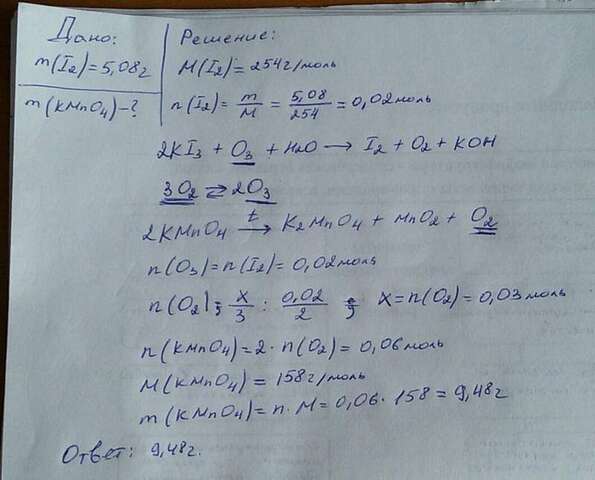 Дано:
m(I₂)=5,08г
m(KMnO₄)-?
Решение:
M(I₂)=254г/моль
n(I₂)= m/M = 5,08/254 = 0,02моль
2KI₃ + O₃ + H₂O → I₂ + O₂ + KOH
3O₂ ⇄ 2O₃
2KMnO₄ →t K₂MnO₄ + MnO₂ + O₂
n(O₃)=n(I₂)=0,02моль
n(O₂); x/3 : 0,02/2 ; x=n(O₂)=0,03моль
n(KMnO₄)=2·n(O₂)=0,06моль
M(KMnO₄)=158г/моль
m(KMnO₄)=n·M=0,06·158=9,48г
Ответ: 9,48г.